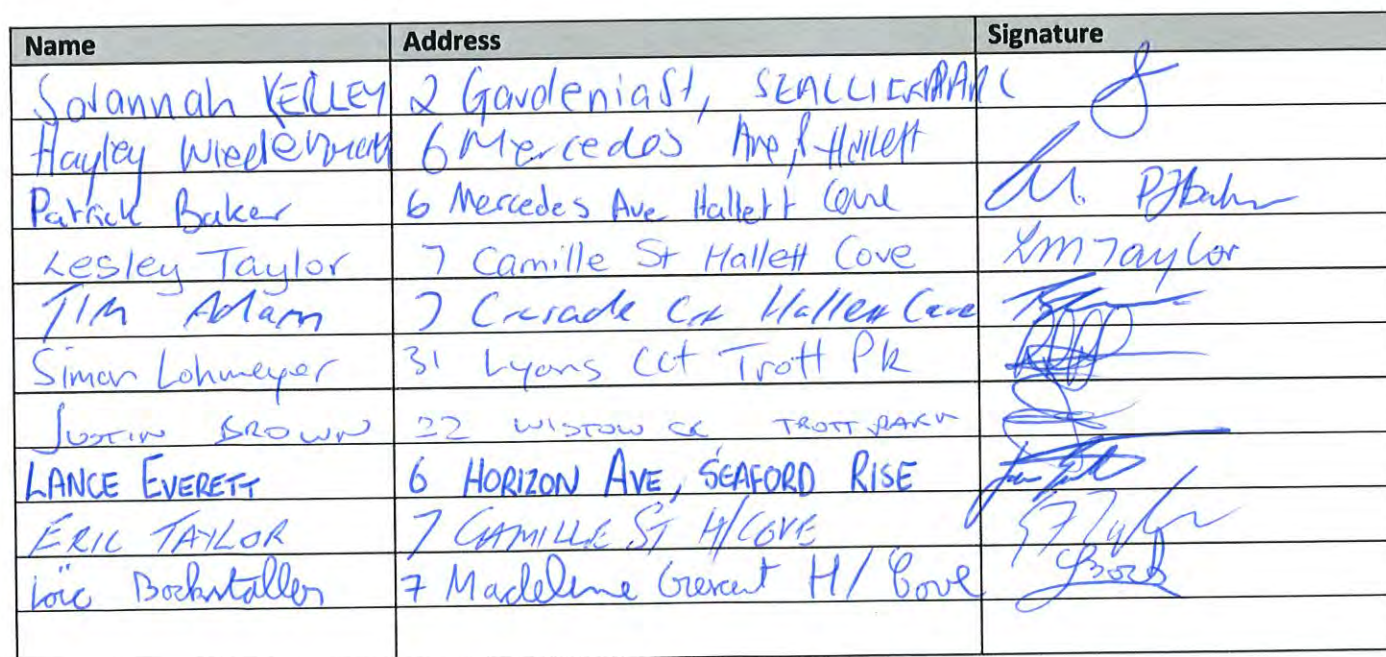 Name Address Signature
Savannah KERLEY 2 Gardenia St,
Hayley 6 Mercedes Ave, Hallett
Patrick Baker 6 Mercedes Ave Hallett Cove PJBaker
Lesley Taylor 7 Camille St Hallett Cove LM Taylor
TIM Adam 7 Hallett Cove
Simon Lohmeyer 31 Lyons CCt Trott Pk
JUSTIN BROWN 22 WISTOW CR TROTT PARK
LANCE EVERETT 6 HORIZON AVE, SEAFORD RISE
ERIC TAYLOR 7 CAMILLE ST H/COVE
Loïc Bockstaller 7 Madeleine Crescent H/ Cove